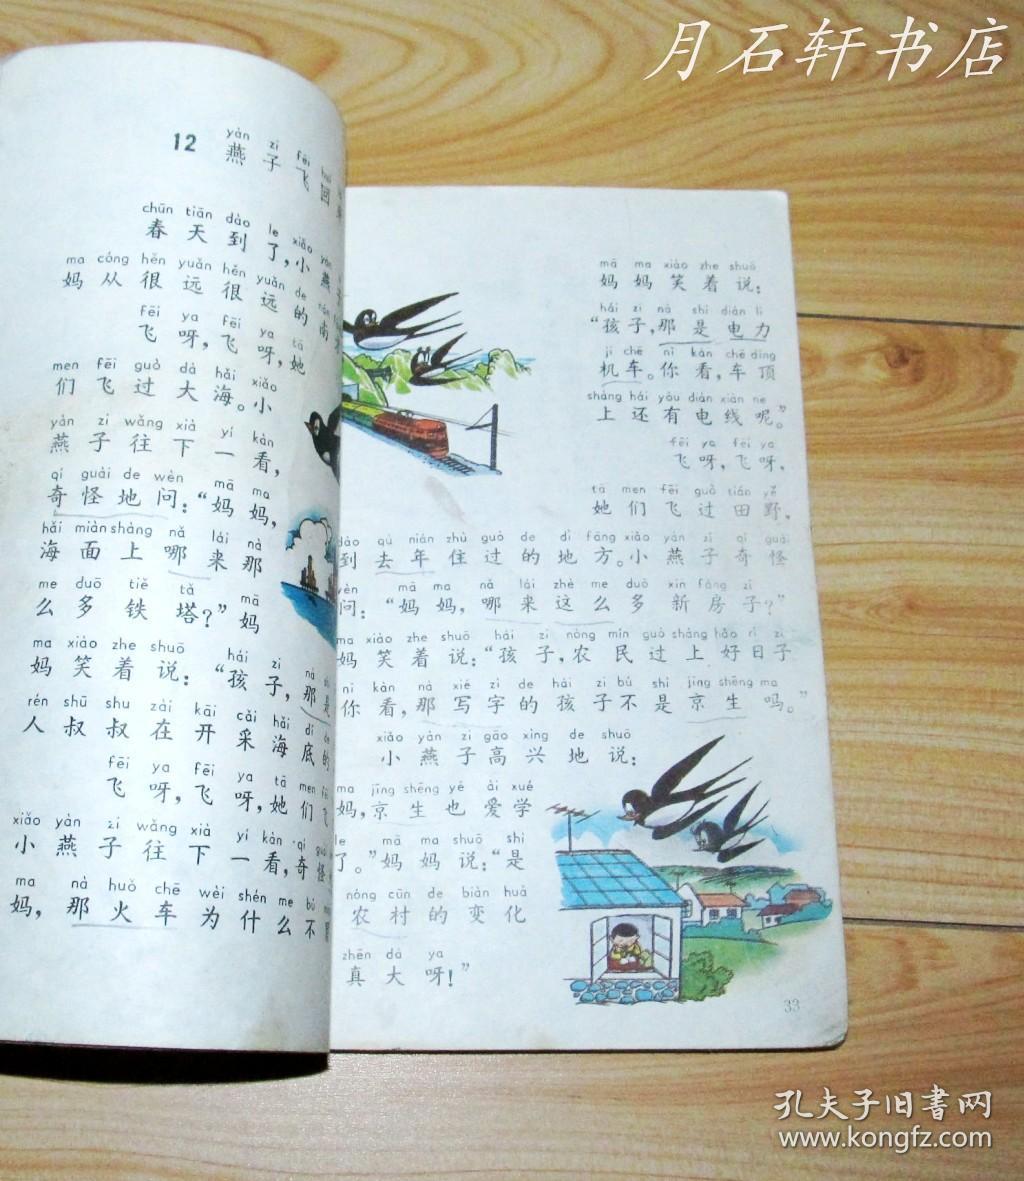 月石轩书店
12
yàn zi fēi
燕子飞回
chūn tiān dào le xiǎo
春天到了，小燕
ma cóng hěn yuǎn hěn yuǎn de
妈从很远很远的南
fēi ya fēi ya tā
飞呀，飞呀，她
men fēi guò dà hǎi xiǎo
们飞过大海。小
yàn zi wǎng xià yí kàn
燕子往下一看，
qí guài de wèn mā ma
奇怪地问：“妈妈，
hǎi miàn shàng nǎ lái nà
海面上哪来那
me duō tiě tǎ mā
么多铁塔？”妈
ma xiào zhe shuō hái zi nà
妈笑着说：“孩子，那是
rén shū shu zài kāi cǎi hǎi dǐ
人叔叔在开采海底的
fēi ya fēi ya tā men
飞呀，飞呀，她们飞
xiǎo yàn zi wǎng xià yí kàn qí
小燕子往下一看，奇怪
ma nà huǒ chē wèi shén me bú
妈，那火车为什么不冒
mā ma xiào zhe shuō
妈妈笑着说：
hái zi nà shì diàn lì
“孩子，那是电力
jī chē nǐ kàn chē dǐng
机车。你看，车顶
shàng hái yǒu diàn xiàn ne
上还有电线呢。”
fēi ya fēi ya
飞呀，飞呀，
tā men fēi guò tián yě
她们飞过田野，
dào qù nián zhù guò de dì fāng xiǎo yàn zi qí guài
到去年住过的地方。小燕子奇怪
wèn mā ma nǎ lái zhè me duō xīn fáng zi
问：“妈妈，哪来这么多新房子？”
ma xiào zhe shuō hái zi nóng mín guò shàng hǎo rì zi
妈笑着说：“孩子，农民过上好日子
nǐ kàn nà xiě zì de hái zi bú shì jīng shēng ma
你看，那写字的孩子不是京生吗。”
xiǎo yàn zi gāo xìng de shuō
小燕子高兴地说：
ma jīng shēng yě ài xué
妈，京生也爱学
le mā ma shuō shì
了。”妈妈说：“是
nóng cūn de biàn huà
农村的变化
zhēn dà ya
真大呀！”
33
孔夫子旧书网
www.kongfz.com